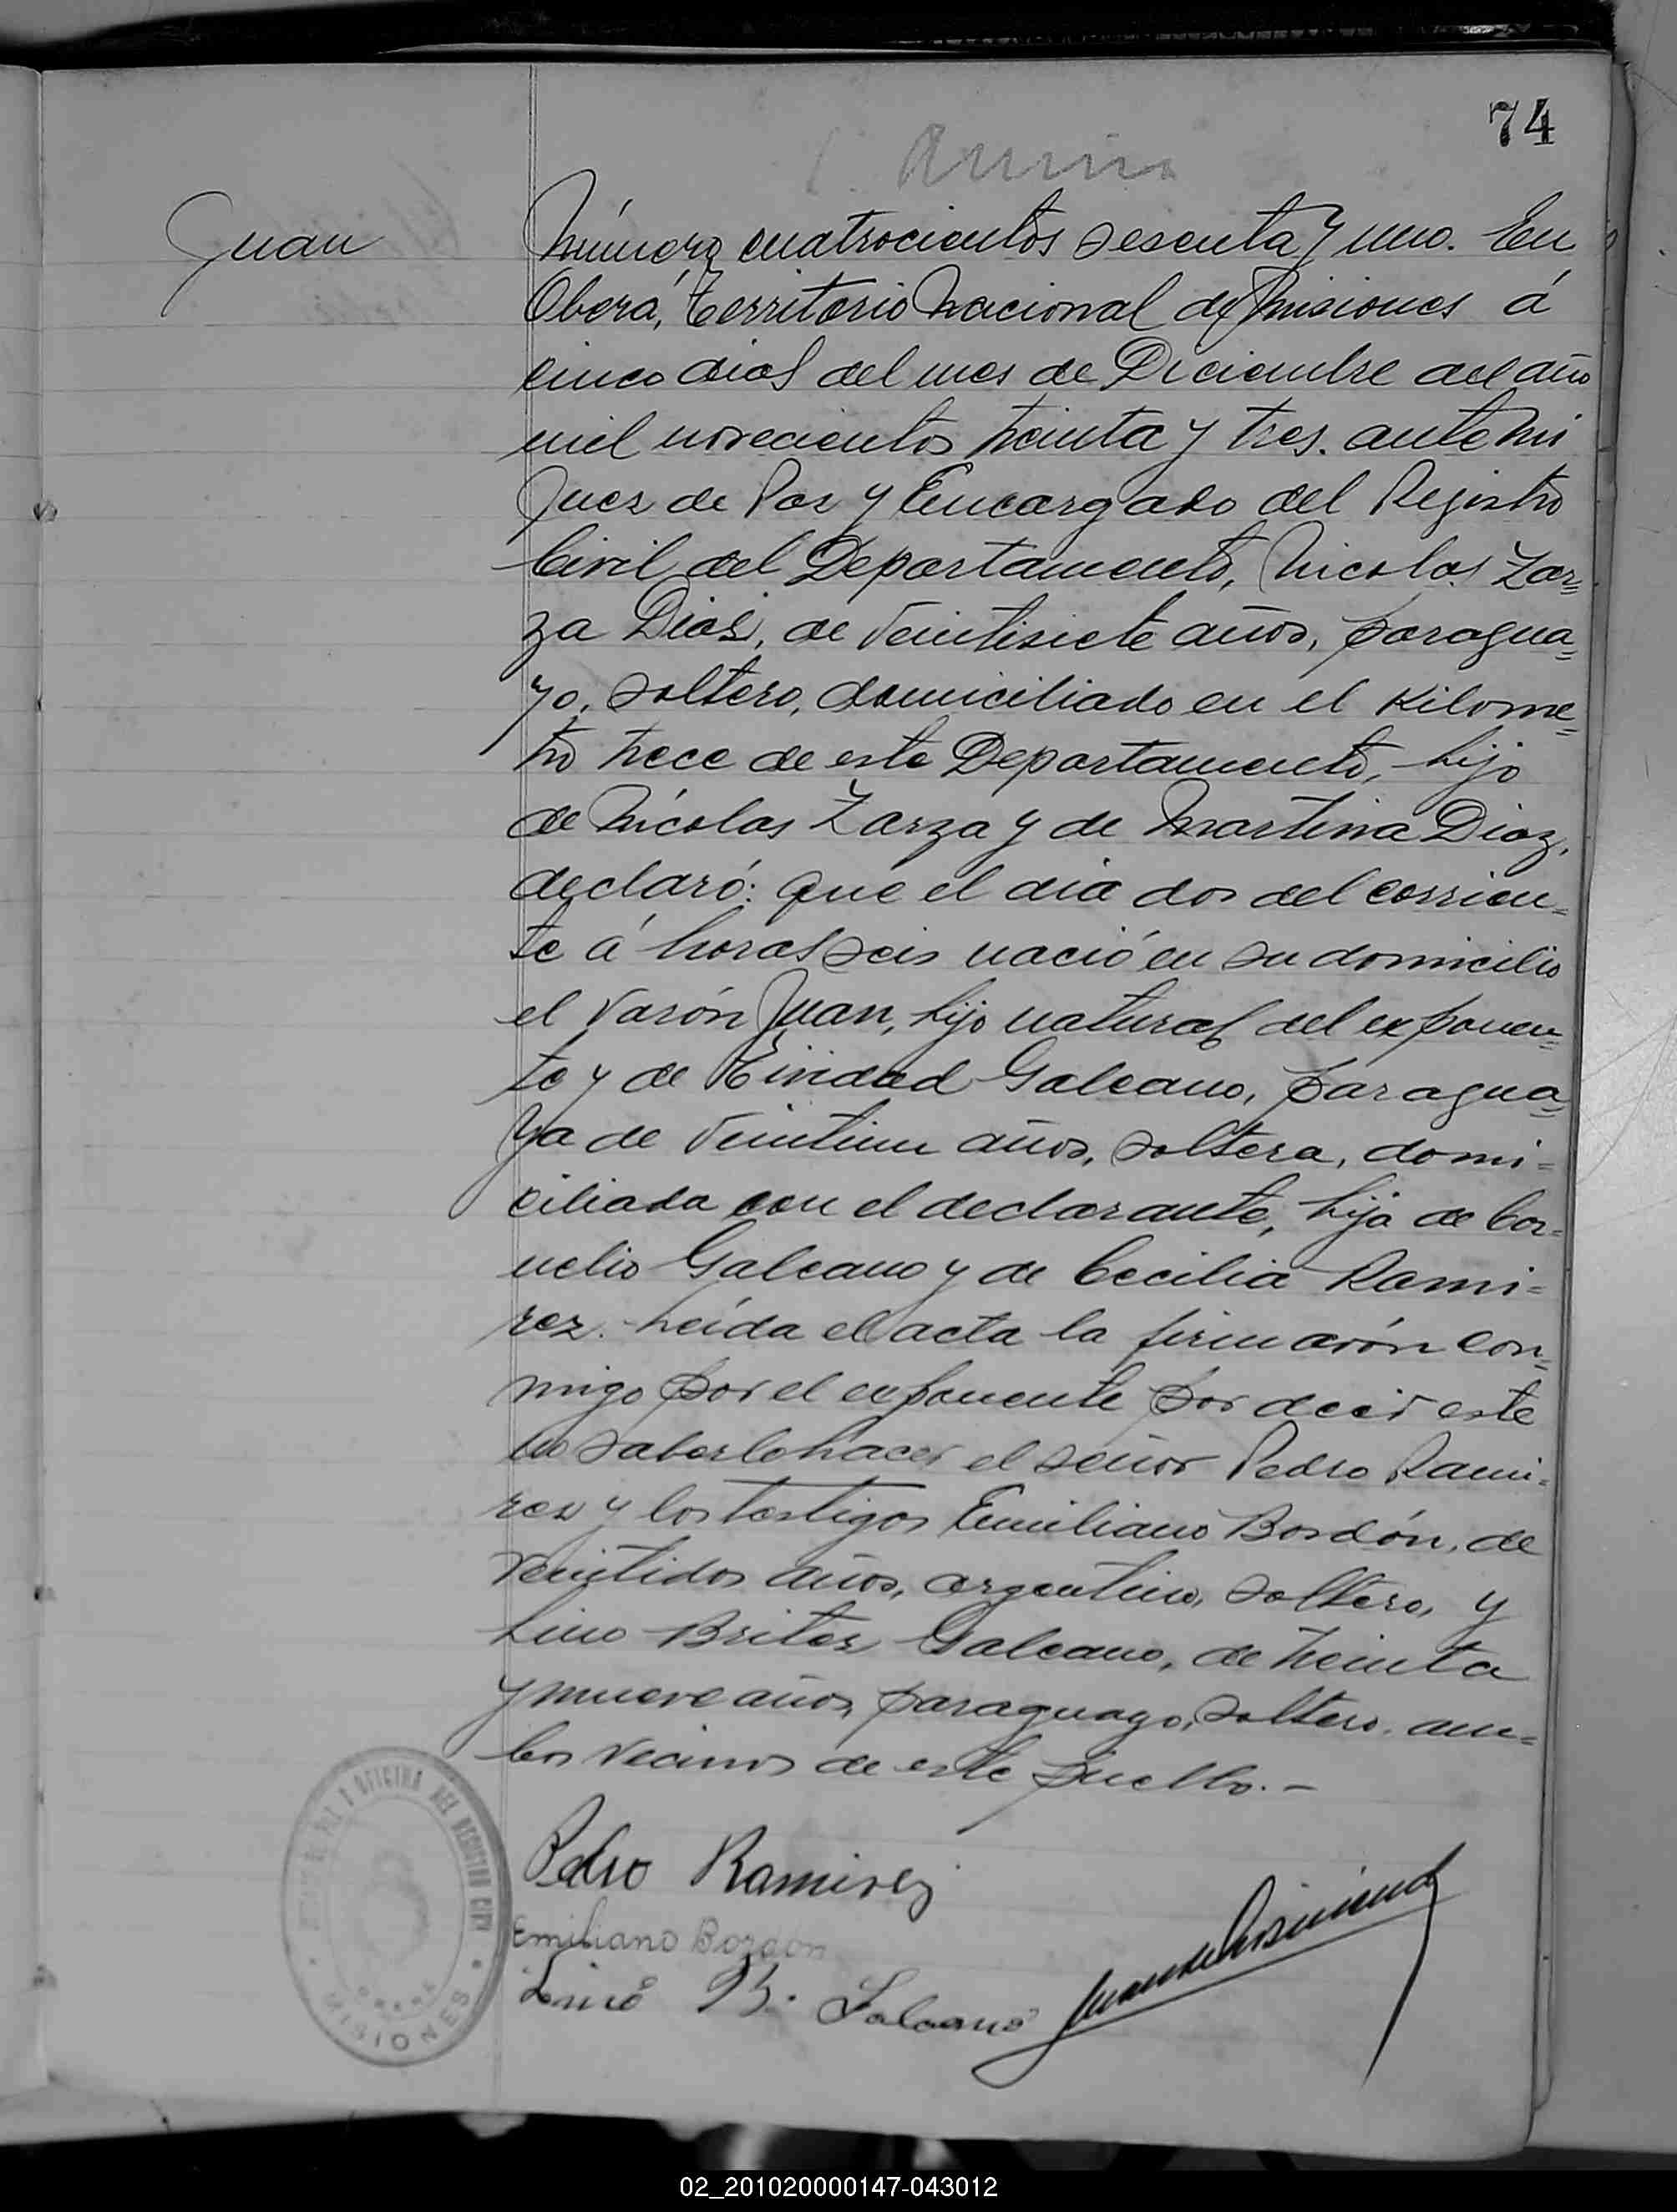 74
Juan
Número cuatrocientos sesenta y uno. En
Oberá, Territorio Nacional de Misiones á
cinco dias del mes de Diciembre del año
mil novecientos treinta y tres. ante mi
Juez de Paz y Encargado del Registro
Civil del Departamento, Nicolas Zar=
za Dias, de veintisiete años, paragua=
yo, soltero, domiciliado en el Kilome=
tro trece de este Departamento, hijo
de Nicolas Zarza y de Martina Diaz,
declaró: que el dia dos del corrien=
te á horas seis nació en su domicilio
el varón Juan, hijo natural del exponen=
te y de Trinidad Galeano, paragua=
ya de veintiun años, soltera, domi=
ciliada con el declarante, hija de Cor=
nelio Galeano y de Cecilia Rami=
rez. Leída el acta la firmarón con=
migo por el exponente por decir este
no saberlo hacer el señor Pedro Rami=
rez y los testigos Emiliano Bordón, de
veintidos años, argentino, soltero, y
Lino Britez Galeano, de treinta
y nueve años, paraguayo, soltero, am=
bos vecinos de este pueblo.-
Pedro Ramirez
Emiliano Bordon
Lino B. Galeano
OFICINA DEL REGISTRO CIVIL
MISIONES
02_201020000147-043012